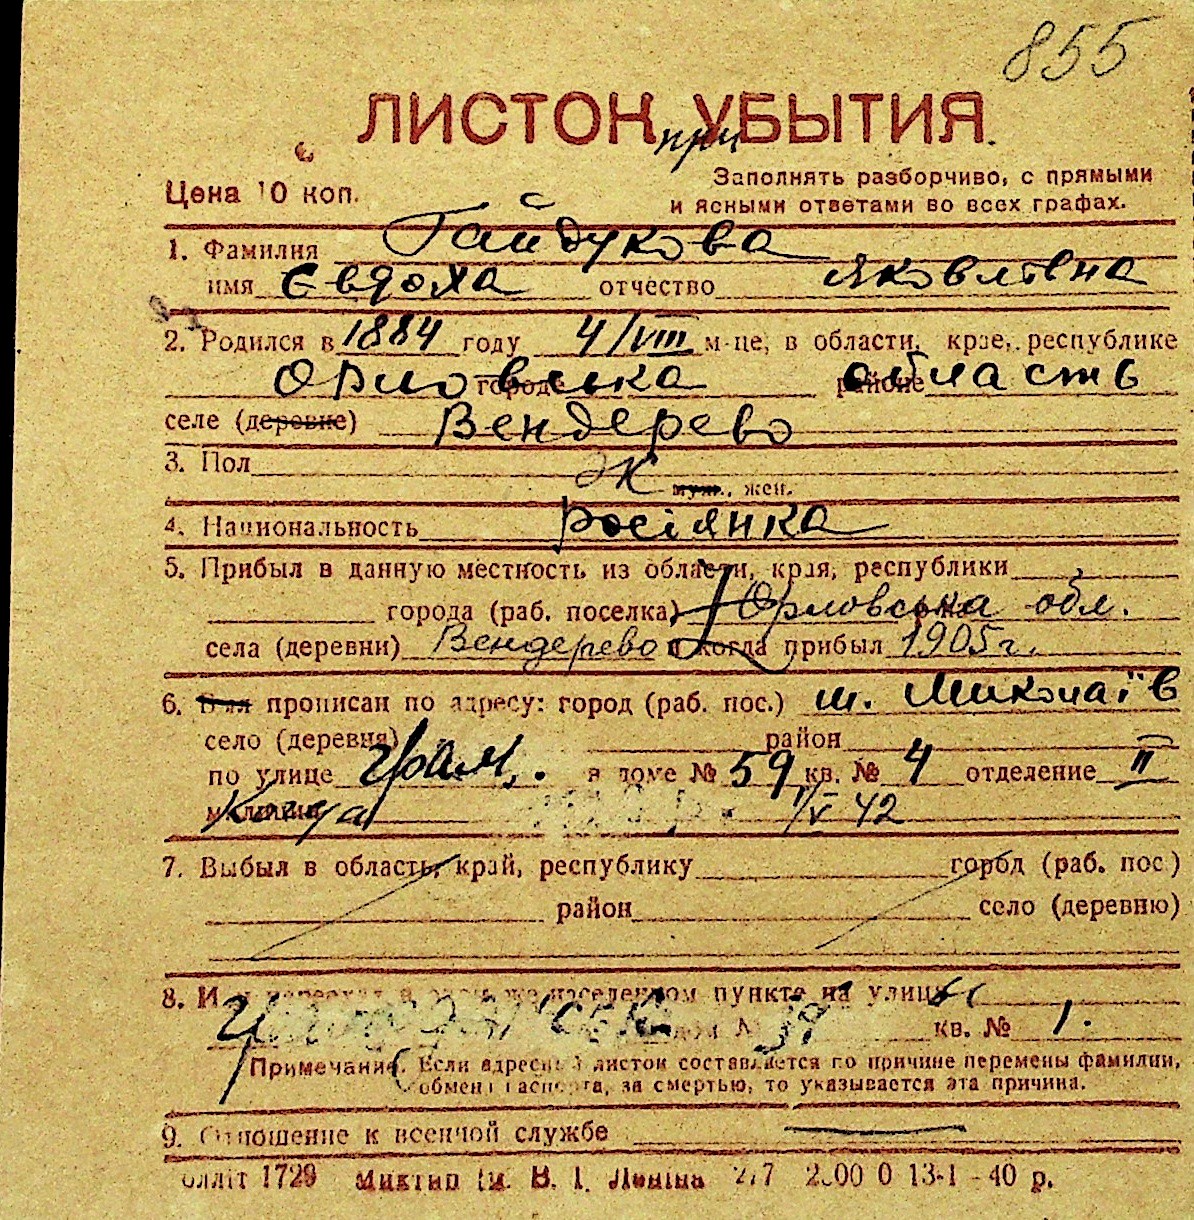 855
ЛИСТОК УБЫТИЯ
при
Цена 10 коп.
Заполнять разборчиво, с прямыми
и ясными ответами во всех графах.
1. Фамилия Гайдукова
имя Євдоха отчество Яковлевна
2. Родился в 1884 году 4/VIII м-це, в области, крае, республике
Орловська городе районе область
селе (деревне) Вендерево
3. Пол Ж
муж., жен.
4. Национальность росіянка
5. Прибыл в данную местность из области, края, республики
города (раб. поселка) Орловська обл.
села (деревни) Вендерево и когда прибыл 1905 г.
6. Был прописан по адресу: город (раб. пос.) м. Миколаїв
село (деревня) район
по улице Грам. в доме № 59 кв. № 4 отделение II
милиции 1/V 42
7. Выбыл в область, край, республику город (раб. пос.)
район село (деревню)
8. Или переехал в этом же населенном пункте на улицу
дом № 39 кв. № 1.
Примечание. Если адресный листок составляется по причине перемены фамилии,
обмена паспорта, за смертью, то указывается эта причина.
9. Отношение к военной службе —
олліт 1729 Миктип ім. В. І. Леніна 13-1 - 40 р.